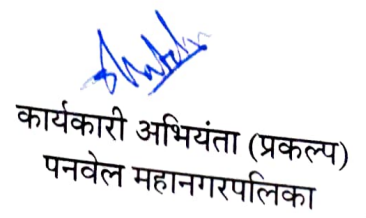 कार्यकारी अभियंता (प्रकल्प)
पनवेल महानगरपलिका